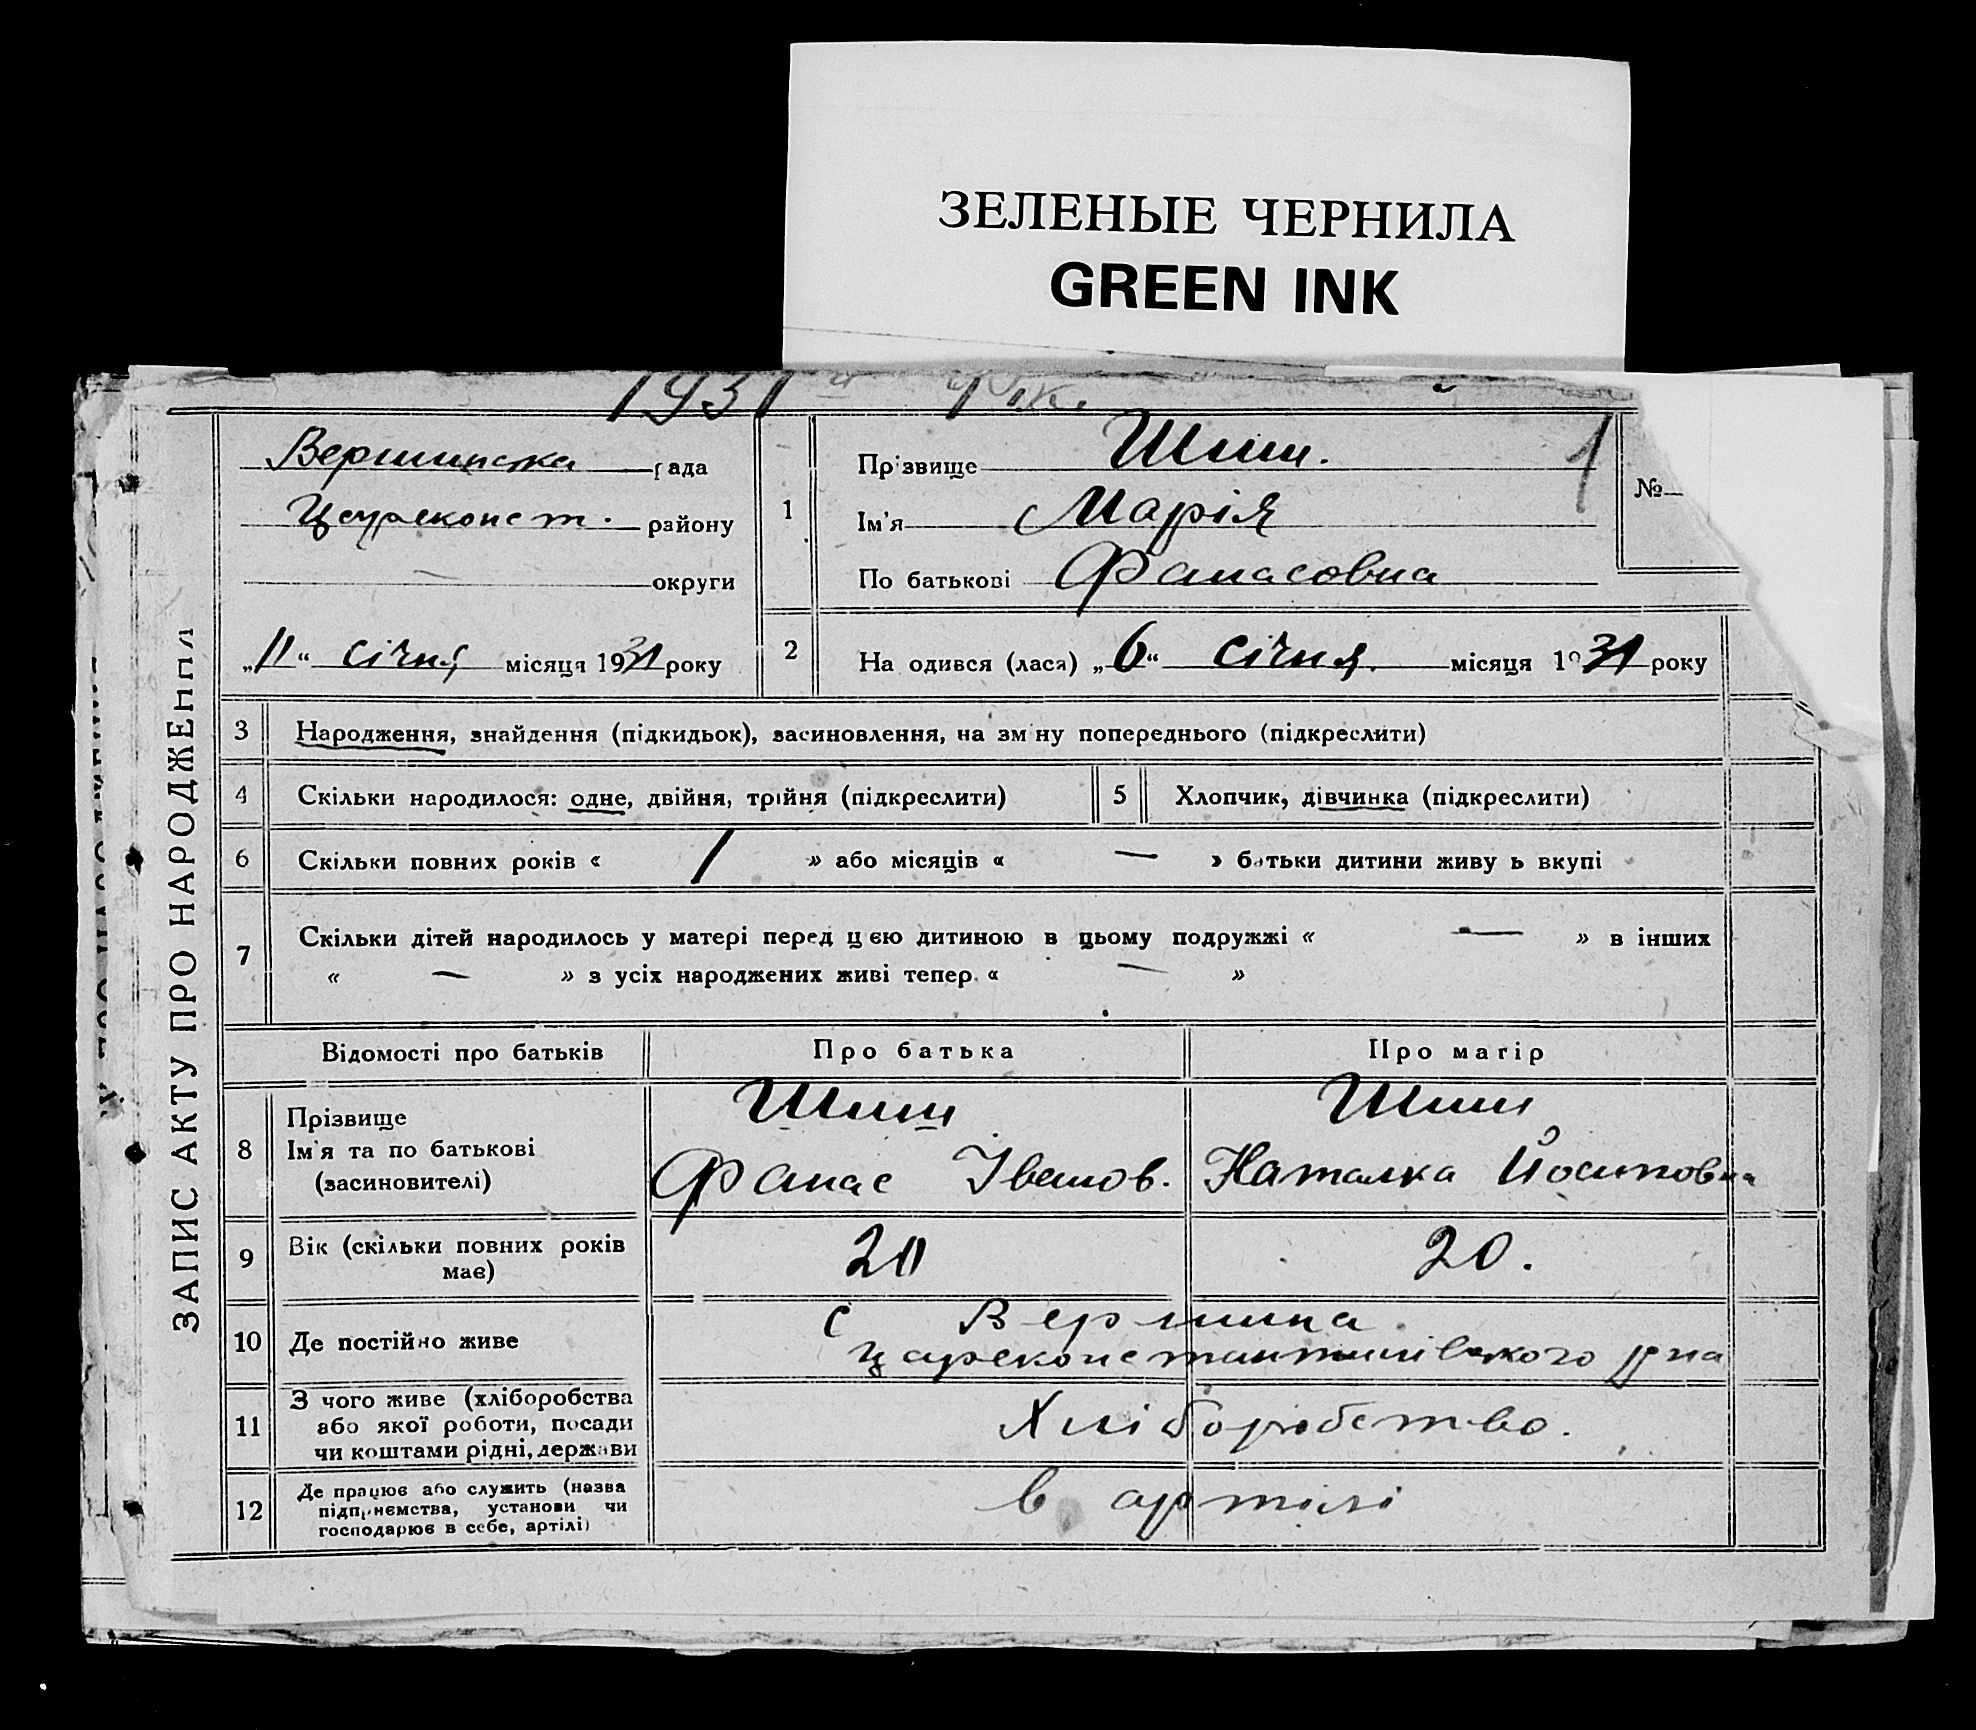 ЗЕЛЕНЫЕ ЧЕРНИЛА
GREEN INK
1931
ЗАПИС АКТУ ПРО НАРОДЖЕННЯ
Вершинська рада
Цареконст. району
— округи
„11“ січня місяця 1931 року
1
Прізвище Шиш.
Ім'я Марія
По батькові Фанасовна
1
№
2
На одився (лася) „6“ січня. місяця 1931 року
3 Народження, знайдення (підкидьок), засиновлення, на зм ну попереднього (підкреслити)
4 Скільки народилося: одне, двійня, трійня (підкреслити)
5 Хлопчик, дівчинка (підкреслити)
6 Скільки повних років « 1 » або місяців « — » батьки дитини живу ь вкупі
7 Скільки дітей народилось у матері перед цією дитиною в цьому подружжі « — » в інших
« — » з усіх народжених живі тепер « — »
Відомості про батьків
Про батька
Про матір
8
Прізвище
Ім'я та по батькові
(засиновителі)
Шиш
Фанас Іванов.
Шиш
Наталка Йосиповна
9
Вік (скільки повних років
має)
20
20.
10 Де постійно живе
с Вершина
Цареконстантинівського рна
11
З чого живе (хліборобства
або якої роботи, посади
чи коштами рідні, держави
Хліборобство.
12
Де працює або служить (назва
підприємства, установи чи
господарює в себе, артілі)
в артілі